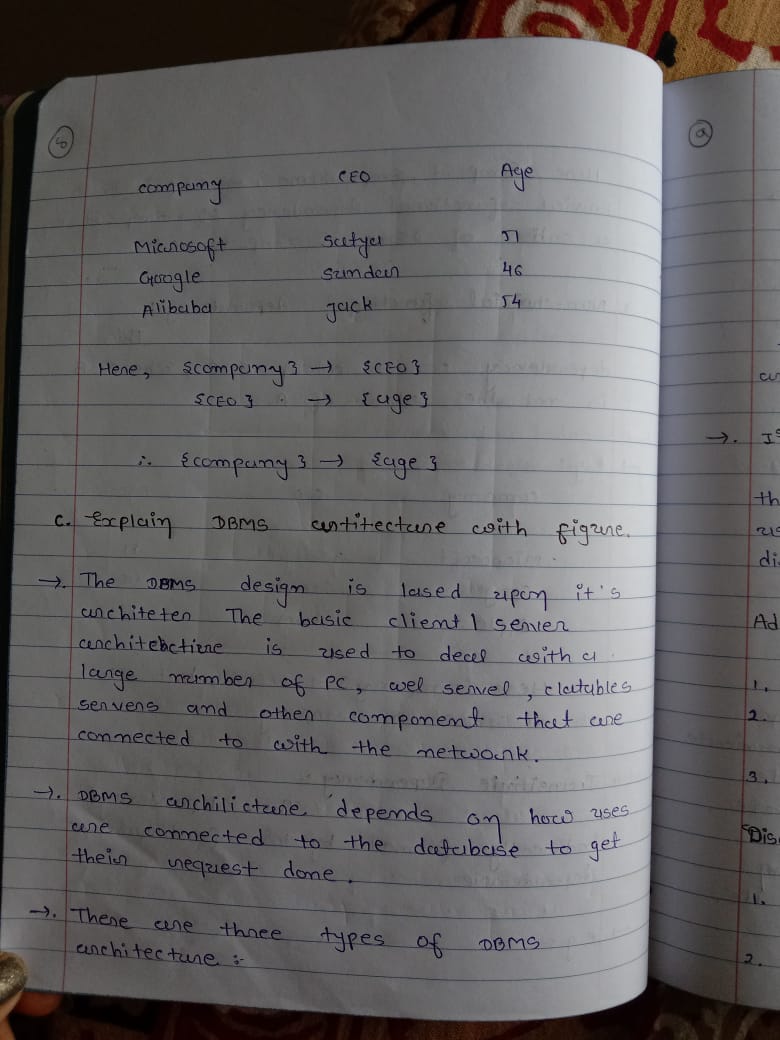 8
company CEO Age
Microsoft Satya 51
Google Sundar 46
Alibaba Jack 54
Here, {company} → {CEO}
{CEO} → {age}
∴ {company} → {age}
c. Explain DBMS artitecture with figure.
→. The DBMS design is lased upon it's
architeter The basic client / server
architebctire is used to deal with a
large number of PC, wel servel, clatables
servers and other component that are
connected to with the network.
→. DBMS archilicture depends on how uses
are connected to the database to get
their request done.
→. There are three types of DBMS
architecture :-
9
→. Is
th
us
di
Ad
1.
2.
3.
Dis
1.
2.